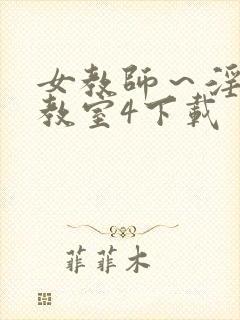 女教師～淫
教室4下載
菲菲木